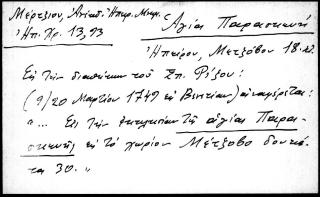 Μέρτζιου, Ἀνέκδ. Ἠπειρ. Μνημ.
Ἠπ. Χρ. 13, 93
Ἁγίας Παρασκευή
Ἠπείρου, Μετζόβου 18 αἰ.
Εἰς τὴν διαθήκην τοῦ Σπ. Ρίζου:
(9/20 Μαρτίου 1749 ἐν Βενετίᾳ) ἀναφέρεται:
"... Εἰς τὴν ἐκκλησίαν τῆς ἁγίας Παρα-
σκευῆς εἰς τὸ χωρίον Μέτζοβο δουκά-
τα 30. "